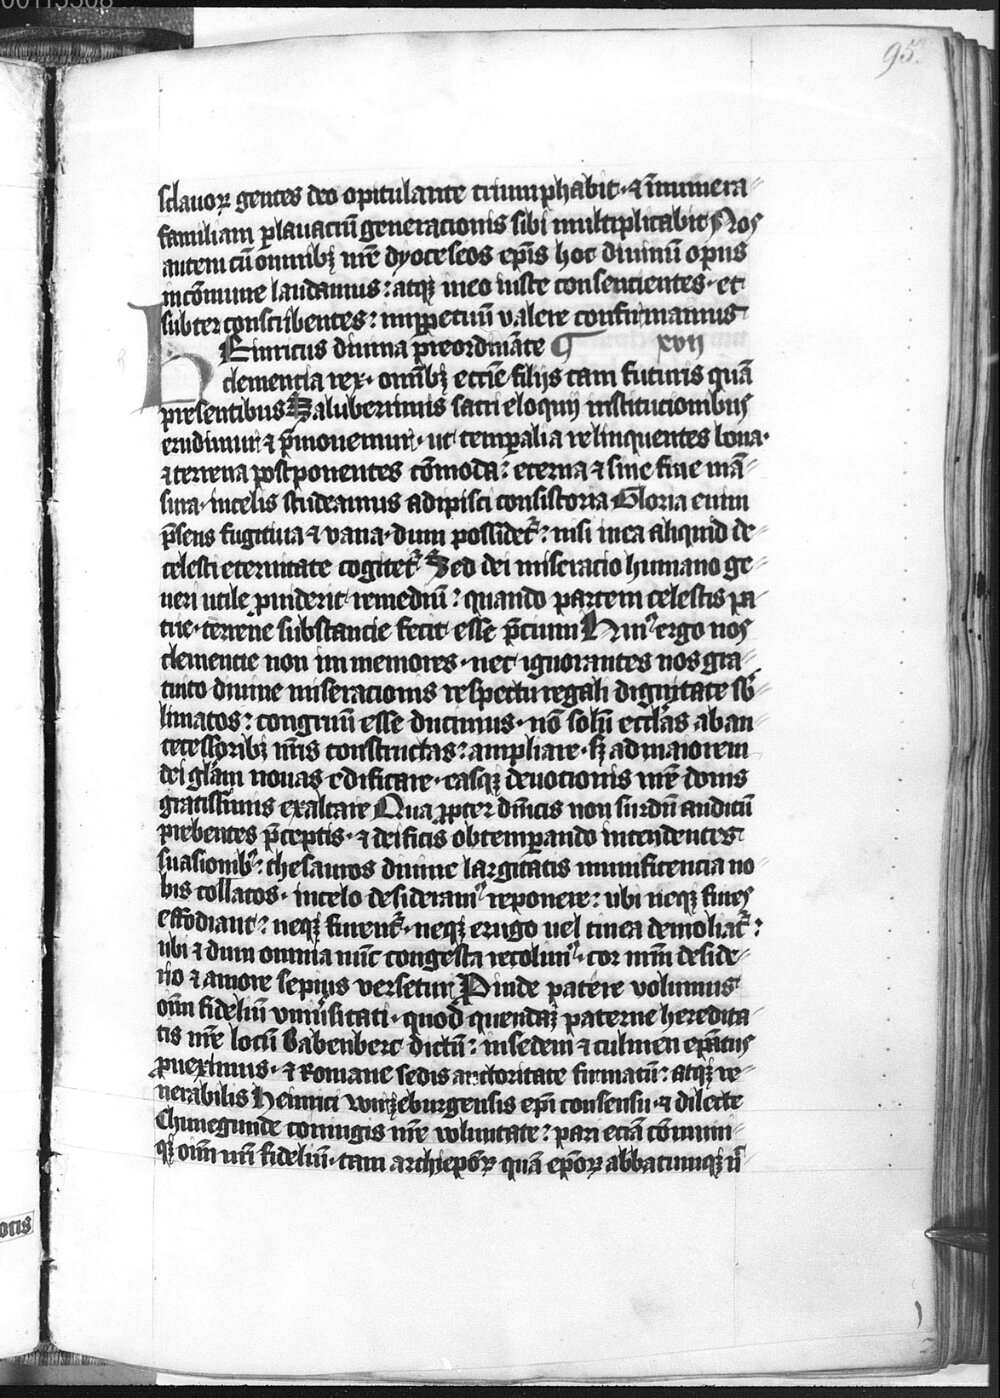 00113308
95.
sclauoꝝ gentes deo opitulante triumphabit· ⁊ inumera
familiam ꝑ lauacrū generacionis sibi multiplicabit Nos
autem cū omnibꝫ nrē dyoceseos epīs hoc diuinū opus
incōmune laudamus: atqꝫ meo iuste consencientes· et
subter conscribentes: imꝑpetuū valere confirmamus
HEinricus diuina p̄reordināte ¶ xvij
clemencia rex· omībꝫ eccīe filijs tam futuris quā
presentibus Saluberrimis sacri eloquij institucionibus
erudimur ⁊ p̄monemur· ut temꝑalia relinquentes bona·
⁊ terrena postponentes cōmoda: eterna ⁊ sine fine mā
sura· incelis studeamus adipisci consistoria Gloria enim
p̄sens fugitiua ⁊ vana· dum possidet̉: nisi inea aliquid de
celesti eternitate cogitet̉ Sed dei miseracio humano ge
neri utile ꝓuiderit remediū: quando partem celestis pa
trie· terrene substancie fecit esse p̄cium Hinc ergo nos
clemencie non immemores· nec ignorantes nos gra
tuito diuine miseracionis respectu regali dignitate sb̄
limatos: congruū esse ducimus· nō solū eccl̄as ab an
tecessoribꝫ nrīs constructas: ampliare· sꝫ ad maiorem
dei gl̄am nouas edificare· easqꝫ deuocionis nrē donis
gratissimis exaltare Qua ꝓpter dn̄icis non surdū auditū
prebentes p̄ceptis· ⁊ deificis obtemꝑando intendentes
suasionibꝰ: thesauros diuine largitatis munificencia no
bis collatos· incelo desideramꝰ reponere: ubi neqꝫ fures
effodiant: neqꝫ furent̉· neqꝫ erugo uel tinea demoliat̉:
ubi ⁊ dum omnia nūc congesta recolimꝰ· cor nrm̄ deside
rio ⁊ amore sepius versetur Proinde patēre volumus
omī fideliū vniūsitati· quod quendaꝫ paterne heredita
tis nrē locū Babenberc dictū: insedem ⁊ culmen epātus
ꝓueximus· ⁊ Romane sedis auctoritate firmatū: atqꝫ ve
nerabilis Heinrici wirzeburgensis epī consensu· ⁊ dilecte
Chunegunde coniugis nrē voluntate: pari eciā cōmuni
qꝫ omī nrī fideliū· tam archiepōꝝ quā epōꝝ abbatumqꝫ n̄